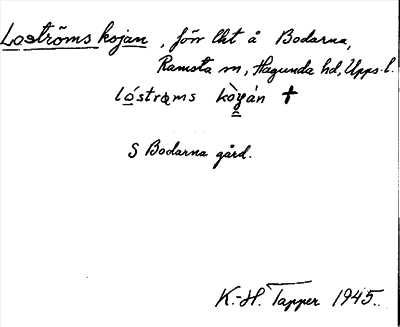 Loströms kojan, förr lht å Bodarna,
Ramsta sn, Hagunda hd, Upps. l.
lóstrøms kòyán †
S Bodarna gård.
K.-H. Tapper 1945.